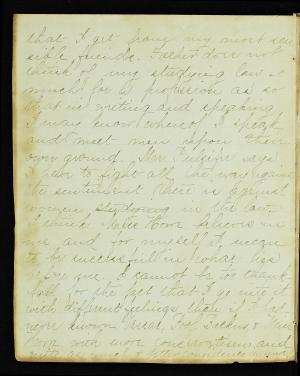 that I get from my most sen
sible friends. Father does not
think of my studying law as
much for a profession as so
that in writing and speaking
I may know whereof I speak
and meet men upon their
own ground. Mr. says
I have to fight all the way against
the sentiment there is against
women studying in the law.
I think Miss believes in
me, and for myself I mean
to be successful in what lies
before me. I cannot be too thank
ful for the fact that I go into it
with different feelings than if I had
never known Prof. &
with more and